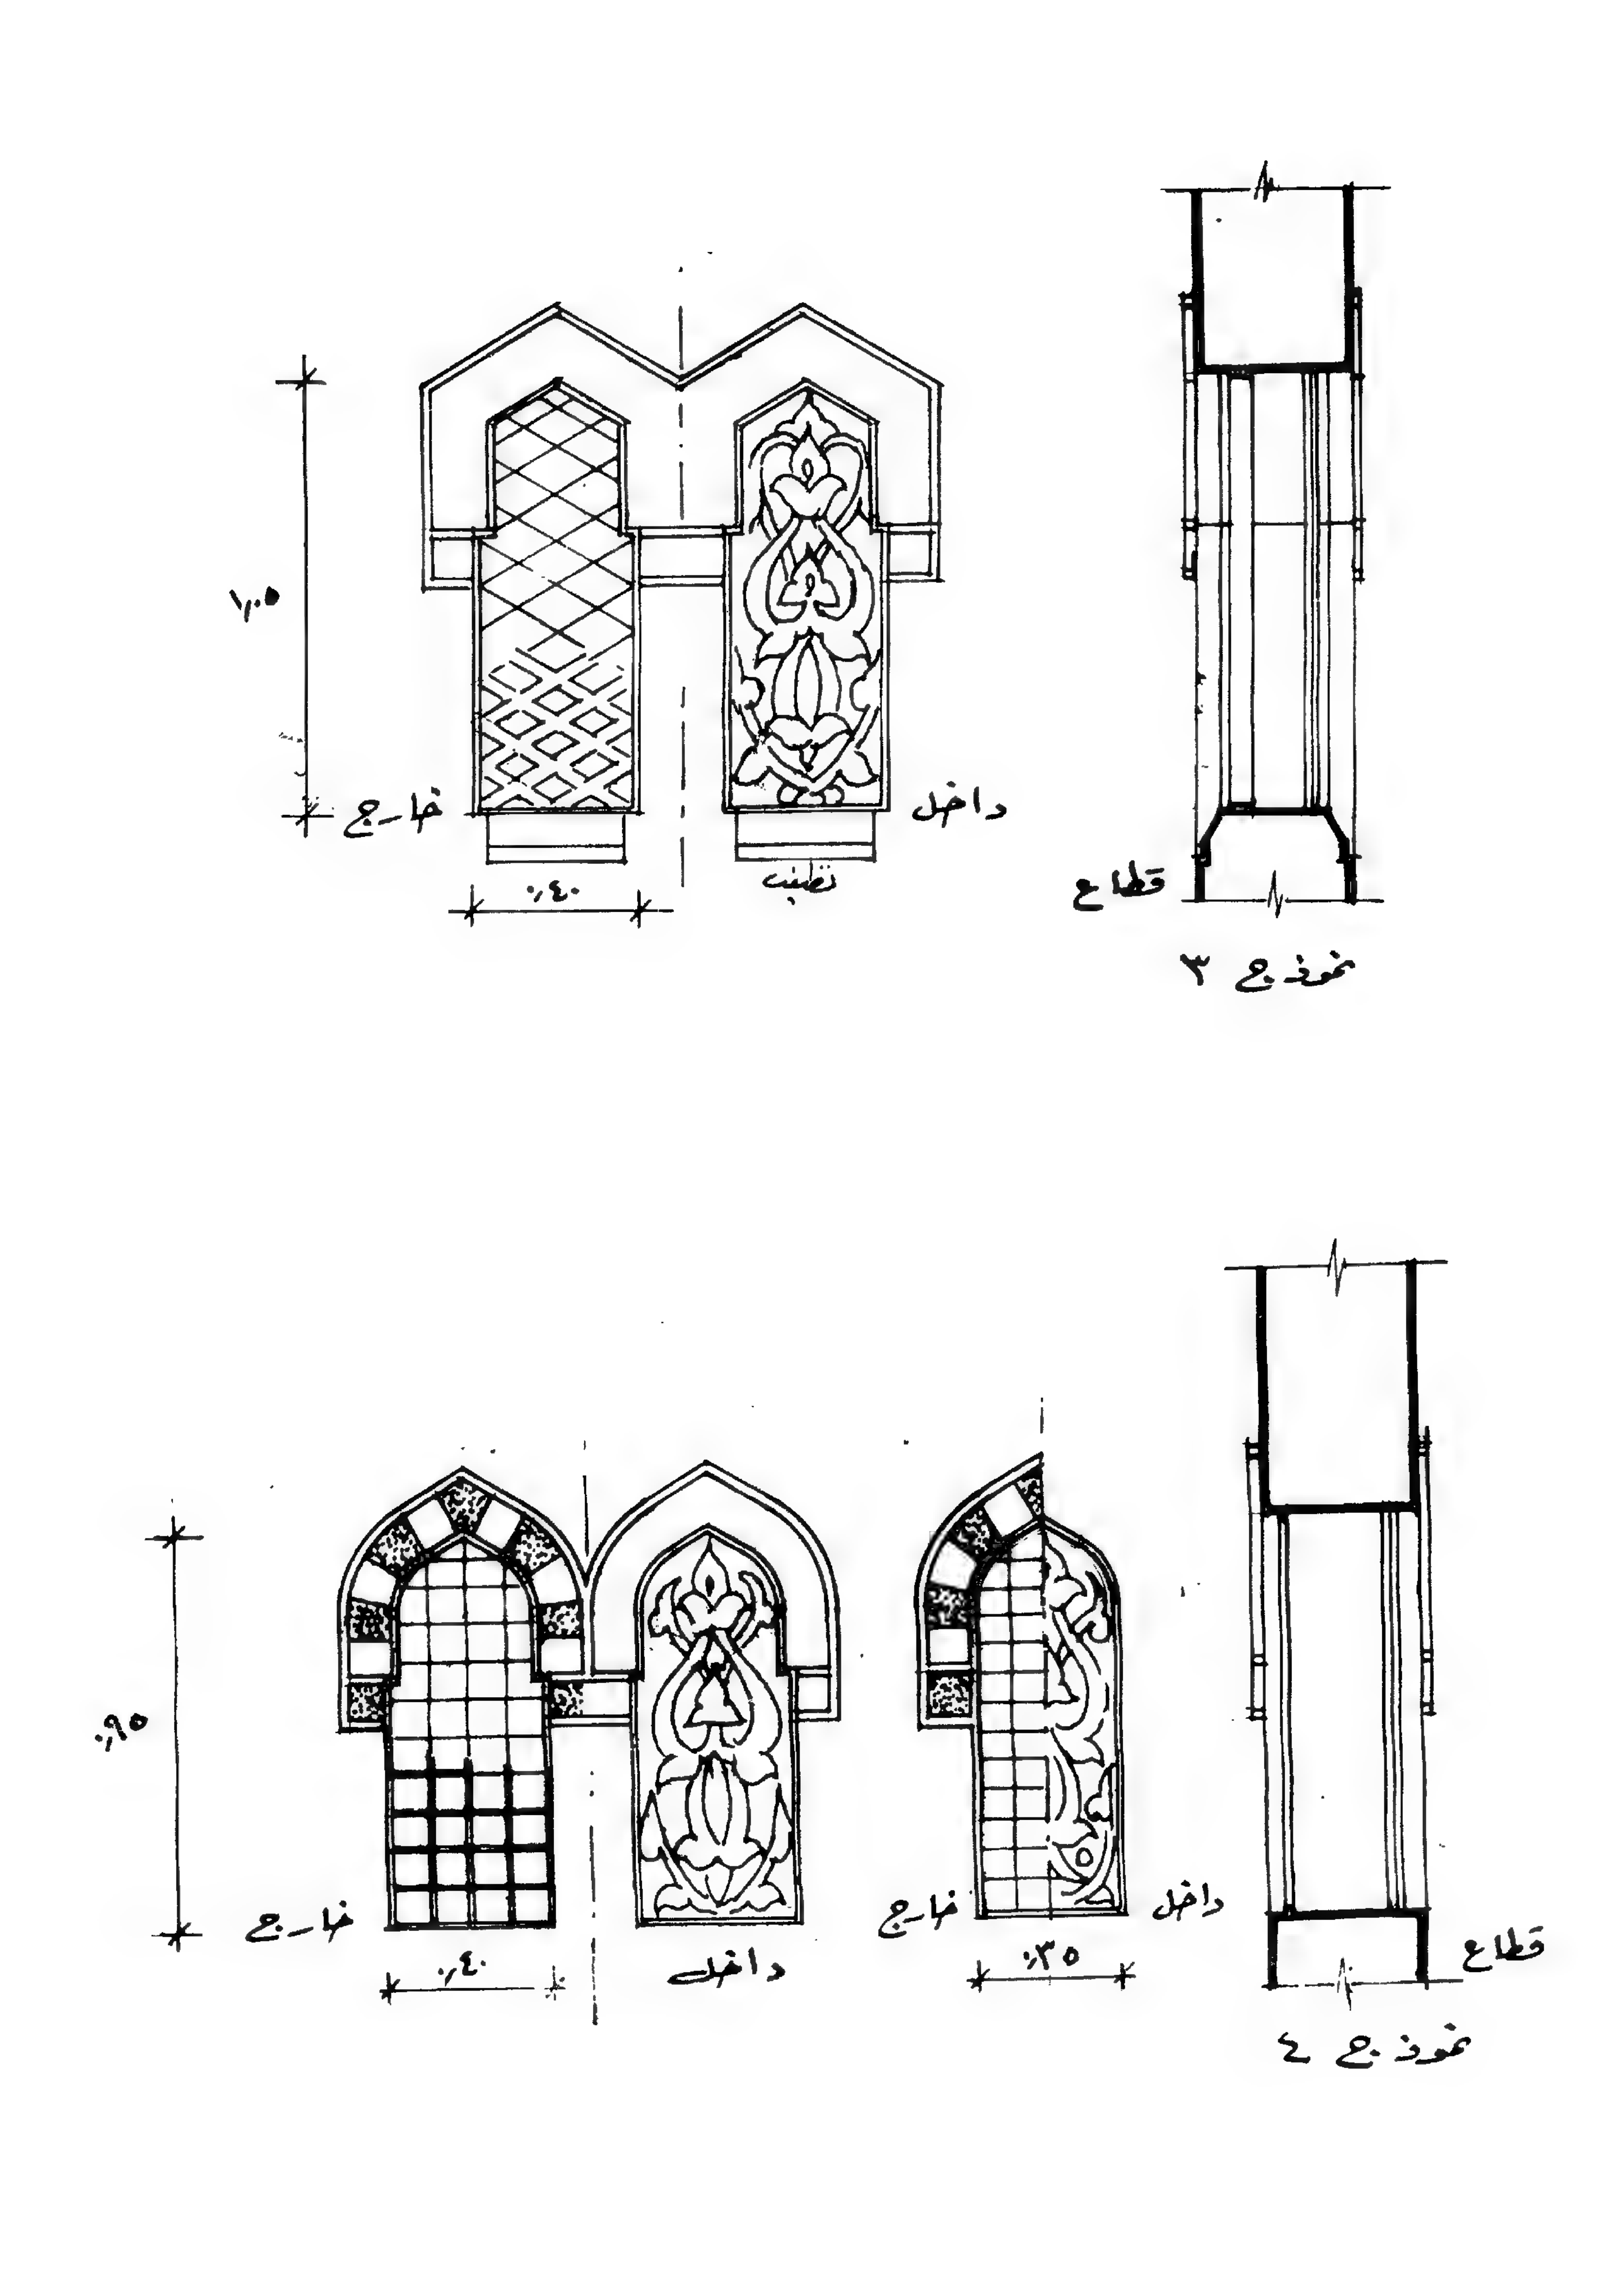 ١,٠٥
خارج
داخل
٠,٤٠
قطاع
نموذج ٣
٠,٩٥
خارج
داخل
٠,٤٠
خارج
داخل
٠,٣٥
قطاع
نموذج ٤